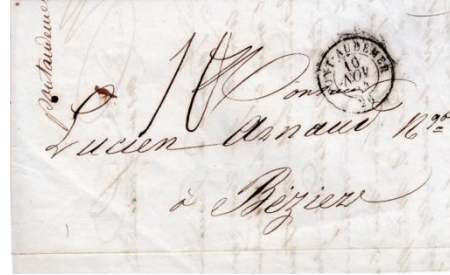 pontaudemer
PONT-AUDEMER
10
NOV
10 Monsieur
Lucien Arnaud Ngt
à Béziers